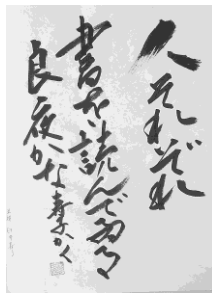 人それぞれ
書を読んでゐる
良夜かな 青邨かく